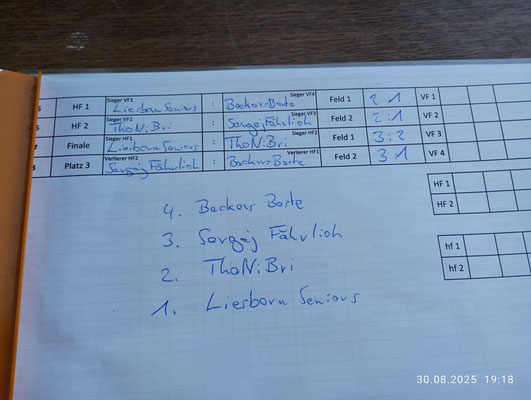 Sieger VF1 Sieger VF4
HF 1 Liesborn Seniors : Beckors Beste Feld 1 2 1 VF 1
Sieger VF2 Sieger VF3
HF 2 ThoNiBri : Sergej Fährlich Feld 2 2:1 VF 2
Sieger HF1 Sieger HF2
7 Finale Liesborn Seniors : ThoNiBri Feld 1 3:2 VF 3
Verlierer HF2 Verlierer HF1
Platz 3 Sergej Fährlich : Beckors Beste Feld 2 3 1 VF 4
HF 1
HF 2
hf 1
hf 2
4. Beckors Beste
3. Sergej Fährlich
2. ThoNiBri
1. Liesborn Seniors
30.08.2025 19:18